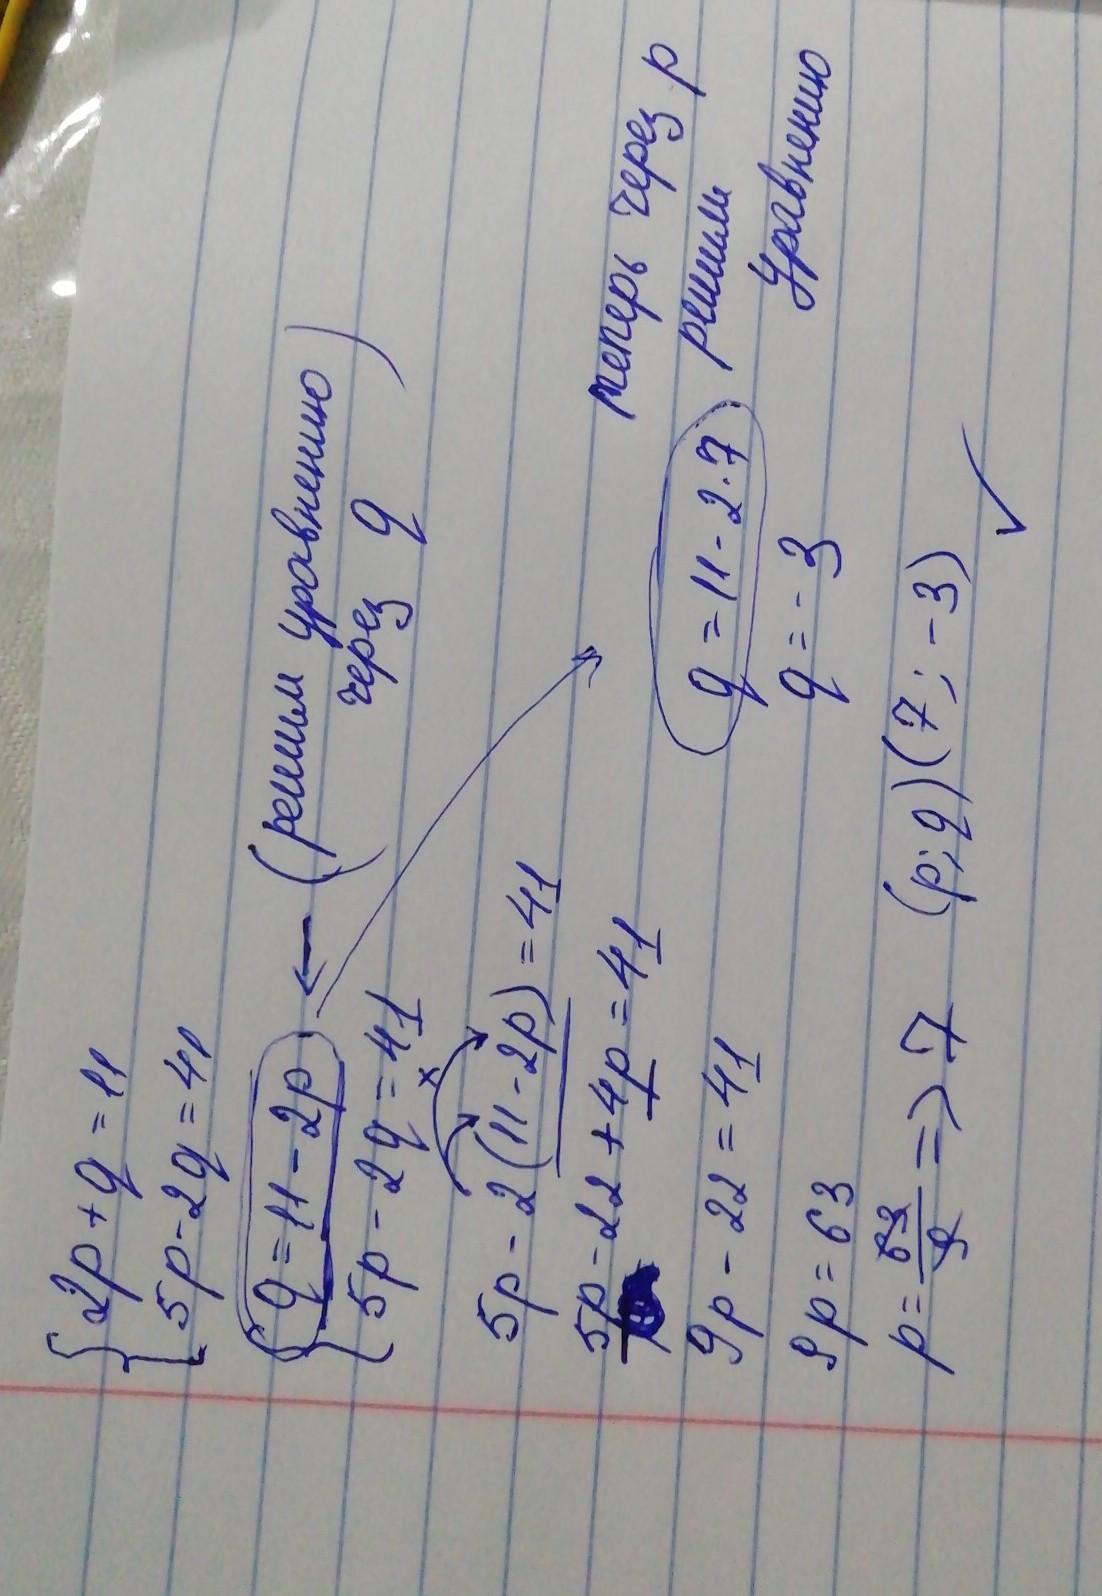 { 2p + q = 11
5p - 2q = 41
{ q = 11 - 2p ← (решим уравнению
через q)
5p - 2q = 41
5p - 2(11 - 2p) = 41
5p - 22 + 4p = 41
9p - 22 = 41
9p = 63
p = 63/9 => 7
теперь через p
решим
уравнению
q = 11 - 2·7
q = -3
(p; q) (7; -3) ✓